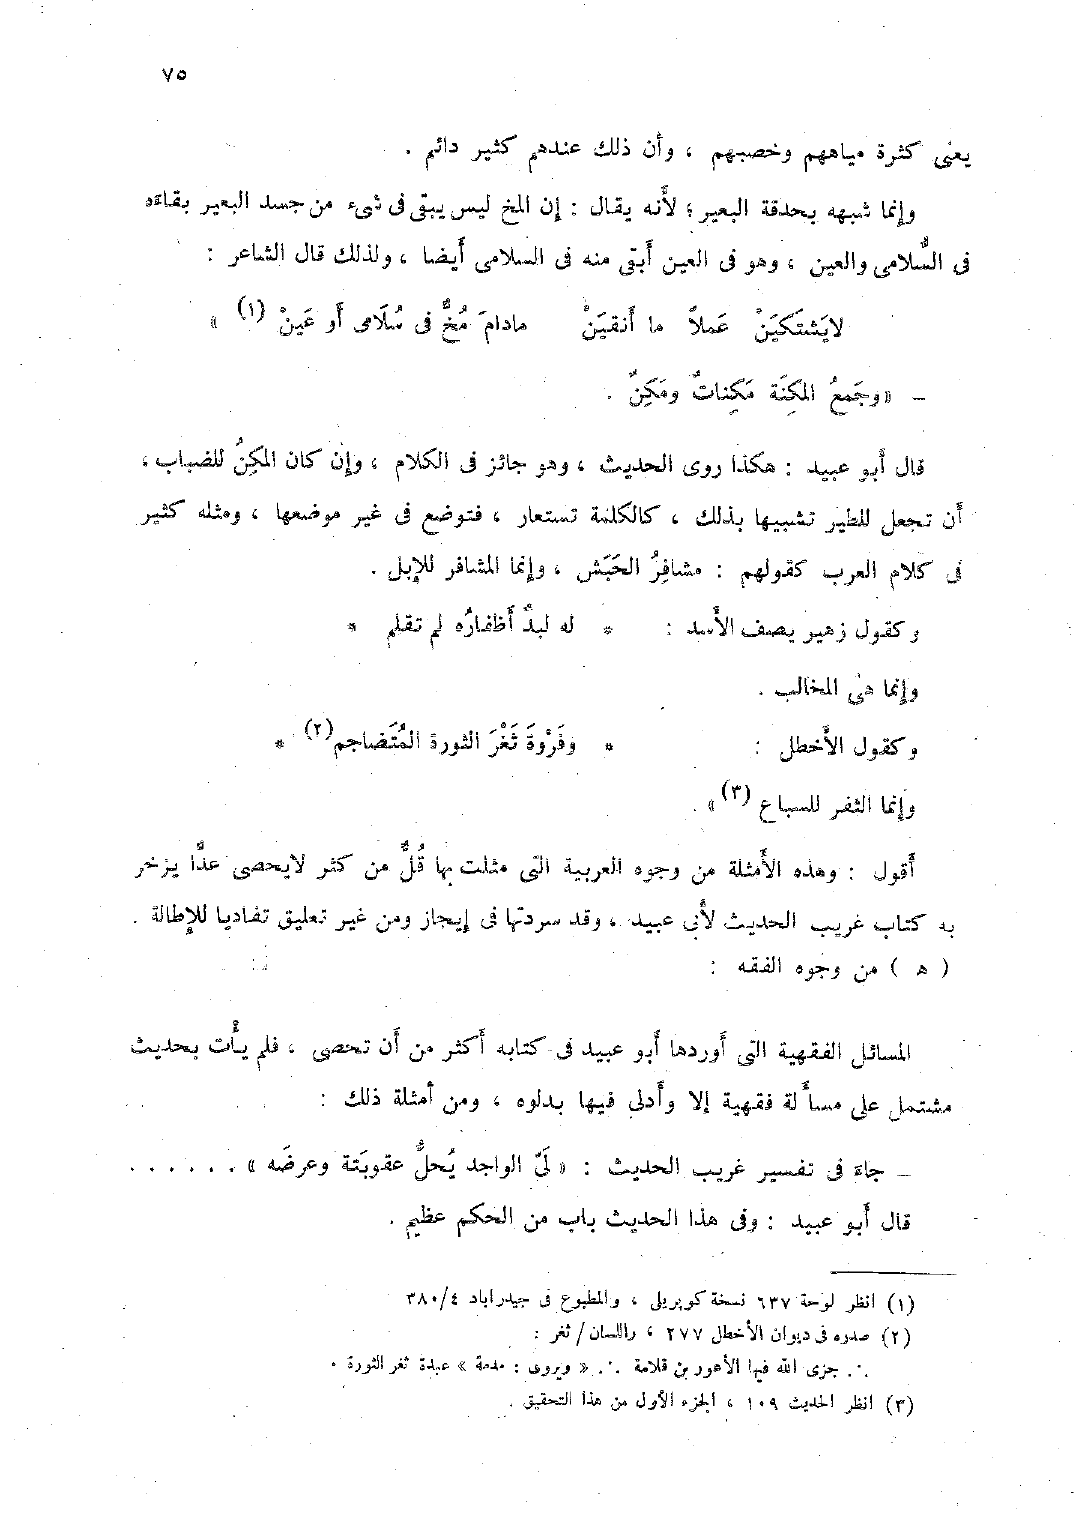 ٧٥
يعنى كثرة مياههم وخصبهم ، وأن ذلك عندهم كثير دائم .
وإنما شبهه بحدقة البعير ؛ لأنه يقال : إن المخ ليس يبقى فى شىء من جسد البعير بقاءه
فى السُّلامى والعين ، وهو فى العين أبقى منه فى السلامى أيضا ، ولذلك قال الشاعر :
لايَشتَكيَنْ عَملاً ما أَنقيَنْ مادامَ مُخٌّ فى سُلَامى أَو عَينْ (١) »
– «وجَمعُ المَكِنَة مَكِناتٌ ومَكِنٌ .
قال أبو عبيد : هكذا روى الحديث ، وهو جائز فى الكلام ، وإن كان المكِنُ للضباب ،
أن تجعل للطير تشبيها بذلك ، كالكلمة تستعار ، فتوضع فى غير موضعها ، ومثله كثير
فى كلام العرب كقولهم : مشافِرُ الحَبَش ، وإنما المشافر للإبل .
وكقول زهير يصف الأسد : * له لبدٌ أَظفارُه لم تقلم *
وإنما هى المخالب .
وكقول الأخطل : * وفَرْوَةَ ثَغْرَ الثورة المُتَضاجم(٢) *
وإنما الثفر للسباع (٣) » .
أقول : وهذه الأمثلة من وجوه العربية التى مثلت بها قُلٌّ من كثر لايحصى عدًّا يزخر
به كتاب غريب الحديث لأبى عبيد ، وقد سردتها فى إيجاز ومن غير تعليق تفاديا للإطالة .
( ه ) من وجوه الفقه :
المسائل الفقهية التى أوردها أبو عبيد فى كتابه أكثر من أن تحصى ، فلم يأت بحديث
مشتمل على مسألة فقهية إلا وأدلى فيها بدلوه ، ومن أمثلة ذلك :
– جاءَ فى تفسير غريب الحديث : « لَىّ الواجد يُحلُّ عقوبَتة وعرضَه » . . . . . .
قال أبو عبيد : وفى هذا الحديث باب من الحكم عظيم .
(١) انظر لوحة ٦٣٧ نسخة كوبريلى ، والمطبوع فى حيدراباد ٣٨٠/٤
(٢) صدره فى ديوان الأخطل ٢٧٧ ، واللسان / ثغر :
.·. جزى الله فيها الأعور بن قلامة .·. « ويروى : مذمة » عبدة ثغر الثورة .
(٣) انظر الحديث ١٠٩ ، الجزء الأول من هذا التحقيق .